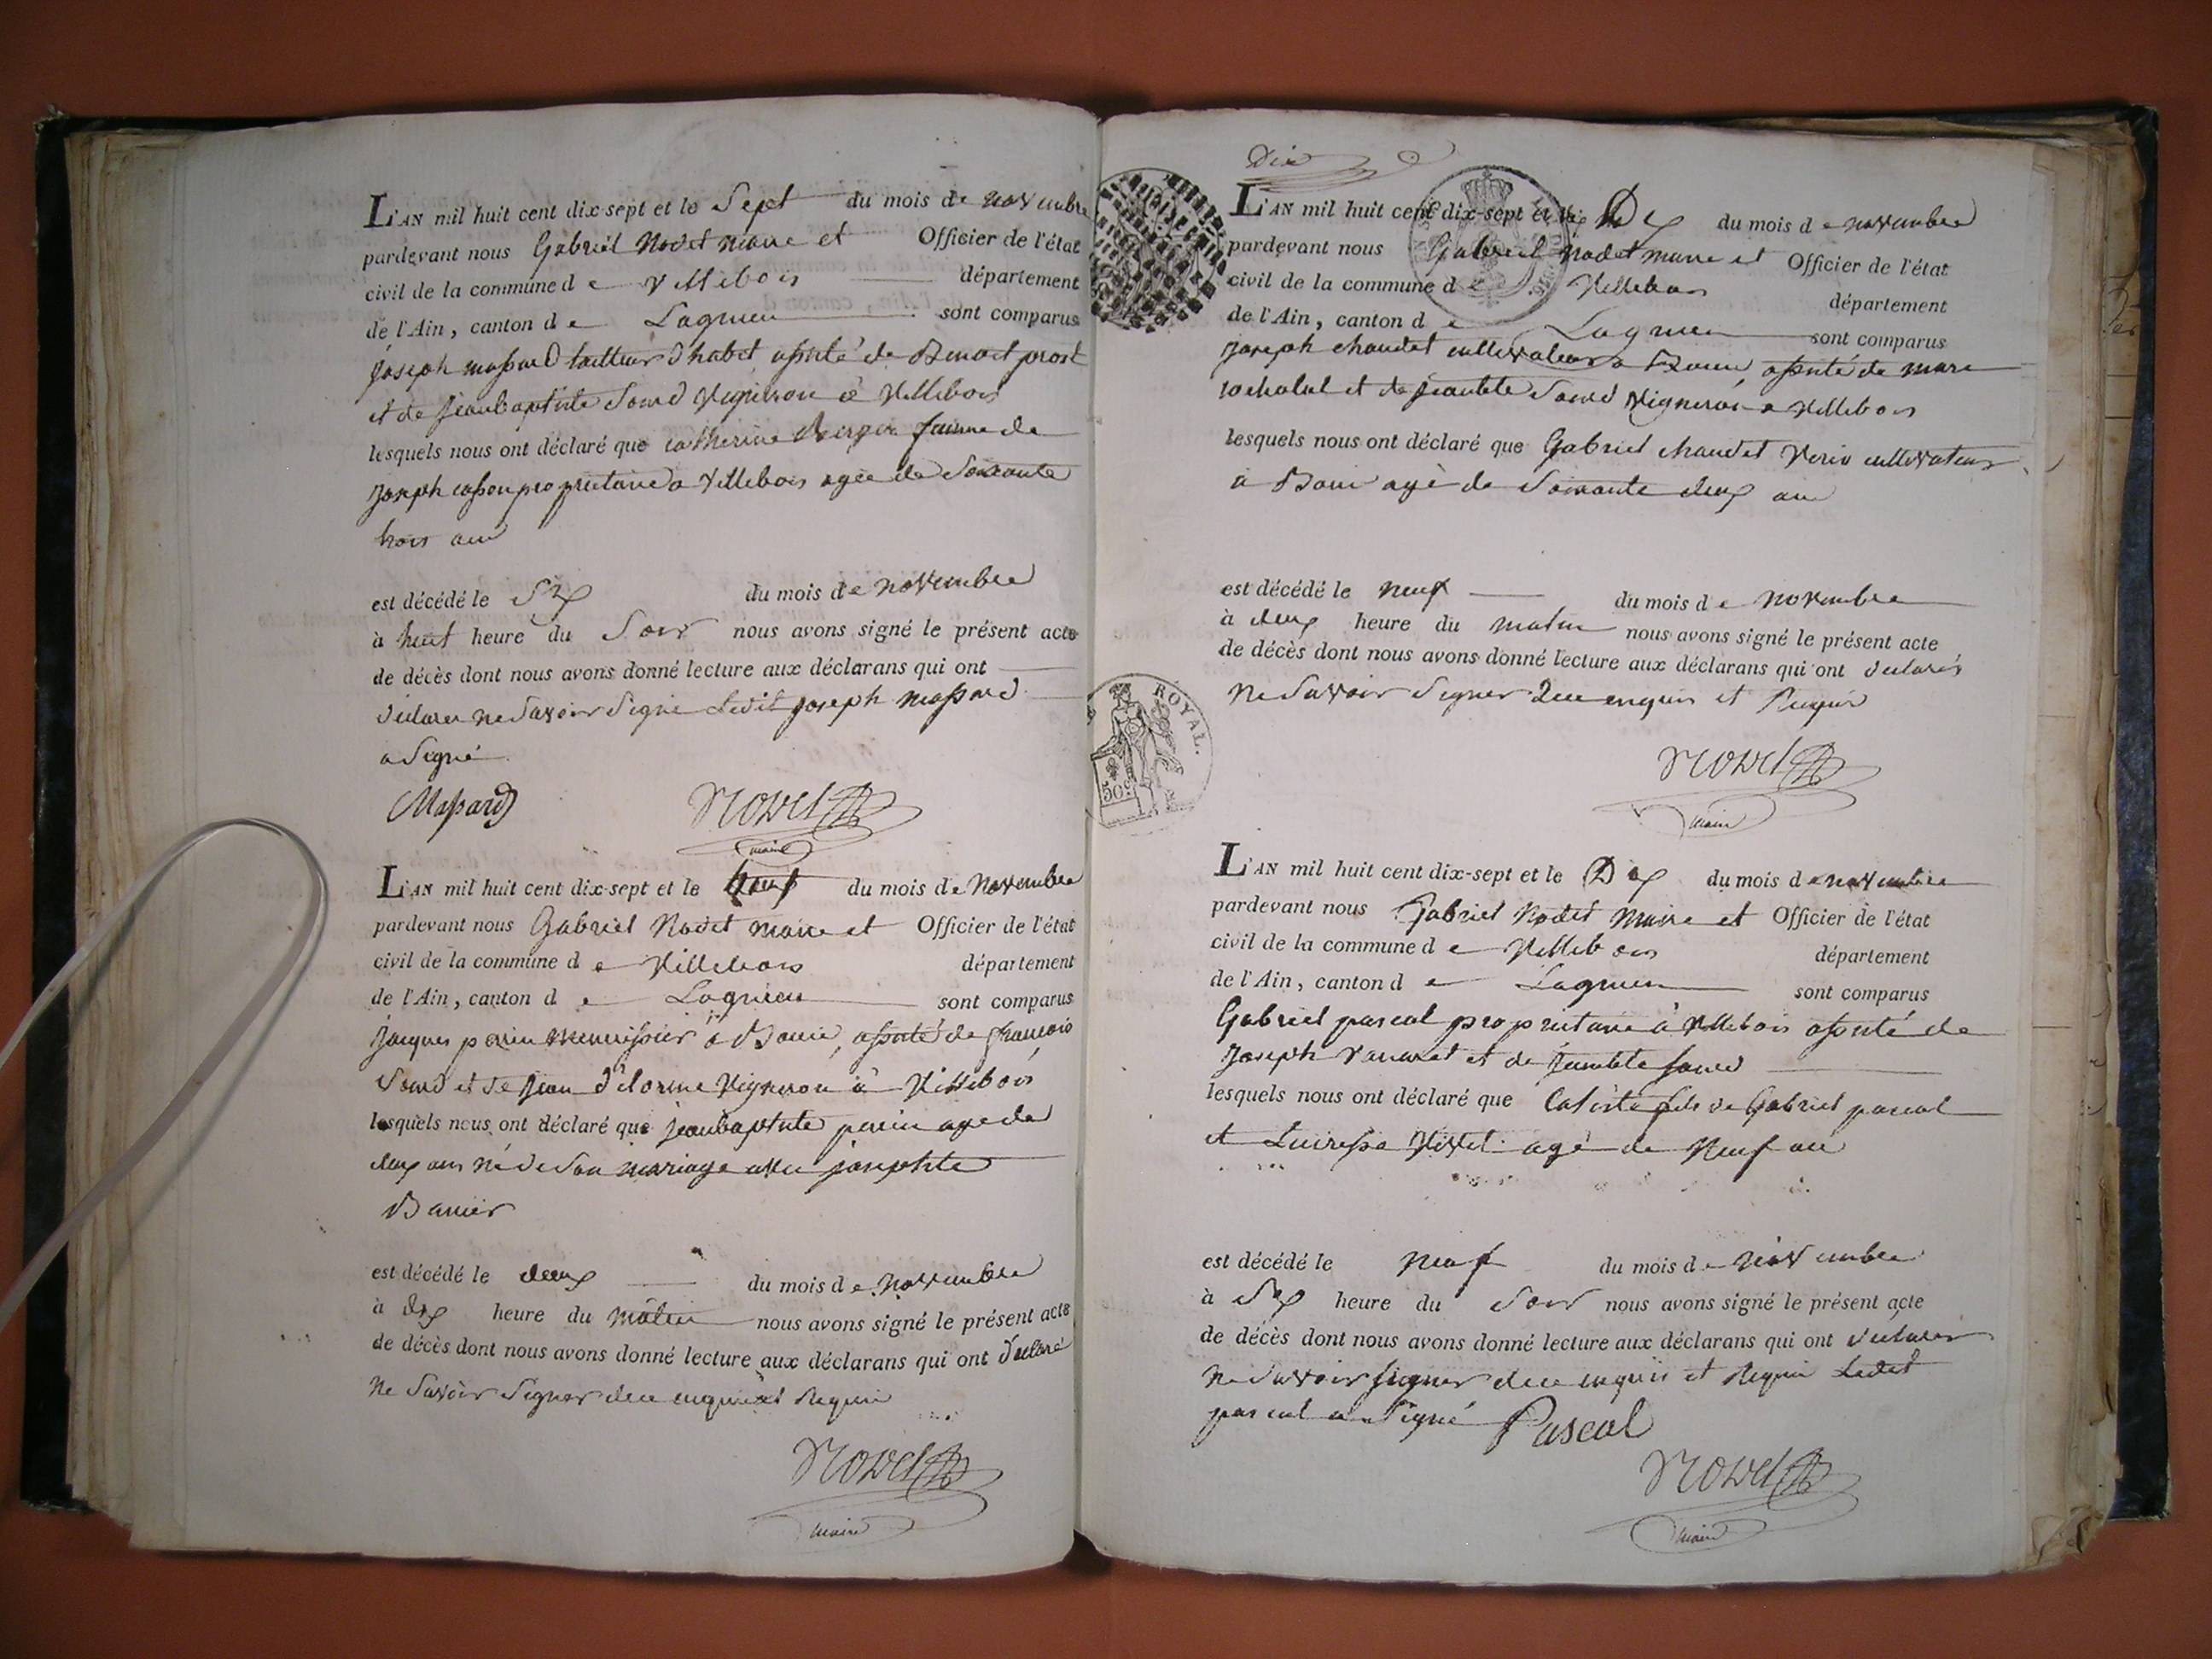 L'AN mil huit cent dix-sept et le Sept du mois de novembre
pardevant nous Gabriel Nodet maire et Officier de l'état
civil de la commune de Villebois département
de l'Ain, canton de Lagnieu sont comparus
joseph massard tailleur d'habit assisté de Benoit prost
et de jeanbaptiste Sourd Vigneron a Villebois
lesquels nous ont déclaré que catherine Berger femme de
joseph casson proprietaire a Villebois agée de Soixante
trois ans
est décédé le Six du mois de novembre
à huit heure du Soir nous avons signé le présent acte
de décès dont nous avons donné lecture aux déclarans qui ont
declarer ne Savoir Signé Ledit joseph massard
a Signé
Massard
Nodet
maire
L'AN mil huit cent dix-sept et le neuf du mois de Novembre
pardevant nous Gabriel Nodet maire et Officier de l'état
civil de la commune de Villebois département
de l'Ain, canton de Lagnieu sont comparus
jacques perin menuissier a Bouis, assisté de francois
Sourd et de jean delorme Vigneron à Villebois
lesquels nous ont déclaré que jeanbaptiste perin age de
deux ans né de Son mariage avec josephte
Banier
est décédé le deux du mois de novembre
à dix heure du matin nous avons signé le présent acte
de décès dont nous avons donné lecture aux déclarans qui ont declaré
ne Savoir Signer de ce enquis et Requis
Nodet
maire
Dix
L'AN mil huit cent dix-sept et le Dix du mois de novembre
pardevant nous Gabriel Nodet maire et Officier de l'état
civil de la commune de Villebois département
de l'Ain, canton de Lagnieu sont comparus
joseph chaudet cultivateur a Bouis, assisté de marc
et de Sourd Vigneron a Villebois
lesquels nous ont déclaré que Gabriel chaudet cultivateur
a Bouis agé de Soixante deux ans
est décédé le neuf du mois de novembre
à deux heure du matin nous avons signé le présent acte
de décès dont nous avons donné lecture aux déclarans qui ont declarés
ne Savoir Signer de ce enquis et Requis
Nodet
maire
ROYAL.
50c
L'AN mil huit cent dix-sept et le Dix du mois de novembre
pardevant nous Gabriel Nodet Maire et Officier de l'état
civil de la commune de Villebois département
de l'Ain, canton de Lagnieu sont comparus
Gabriel pascal proprietaire à Villebois assisté de
Joseph et de Sourd
lesquels nous ont déclaré que Caliste fils de Gabriel pascal
et agé de Neuf ans
est décédé le neuf du mois de novembre
à Six heure du Soir nous avons signé le présent acte
de décès dont nous avons donné lecture aux déclarans qui ont declarer
ne Savoir signer de ce enquis et Requis Ledit
pascal a Signé Pascal
Nodet
maire